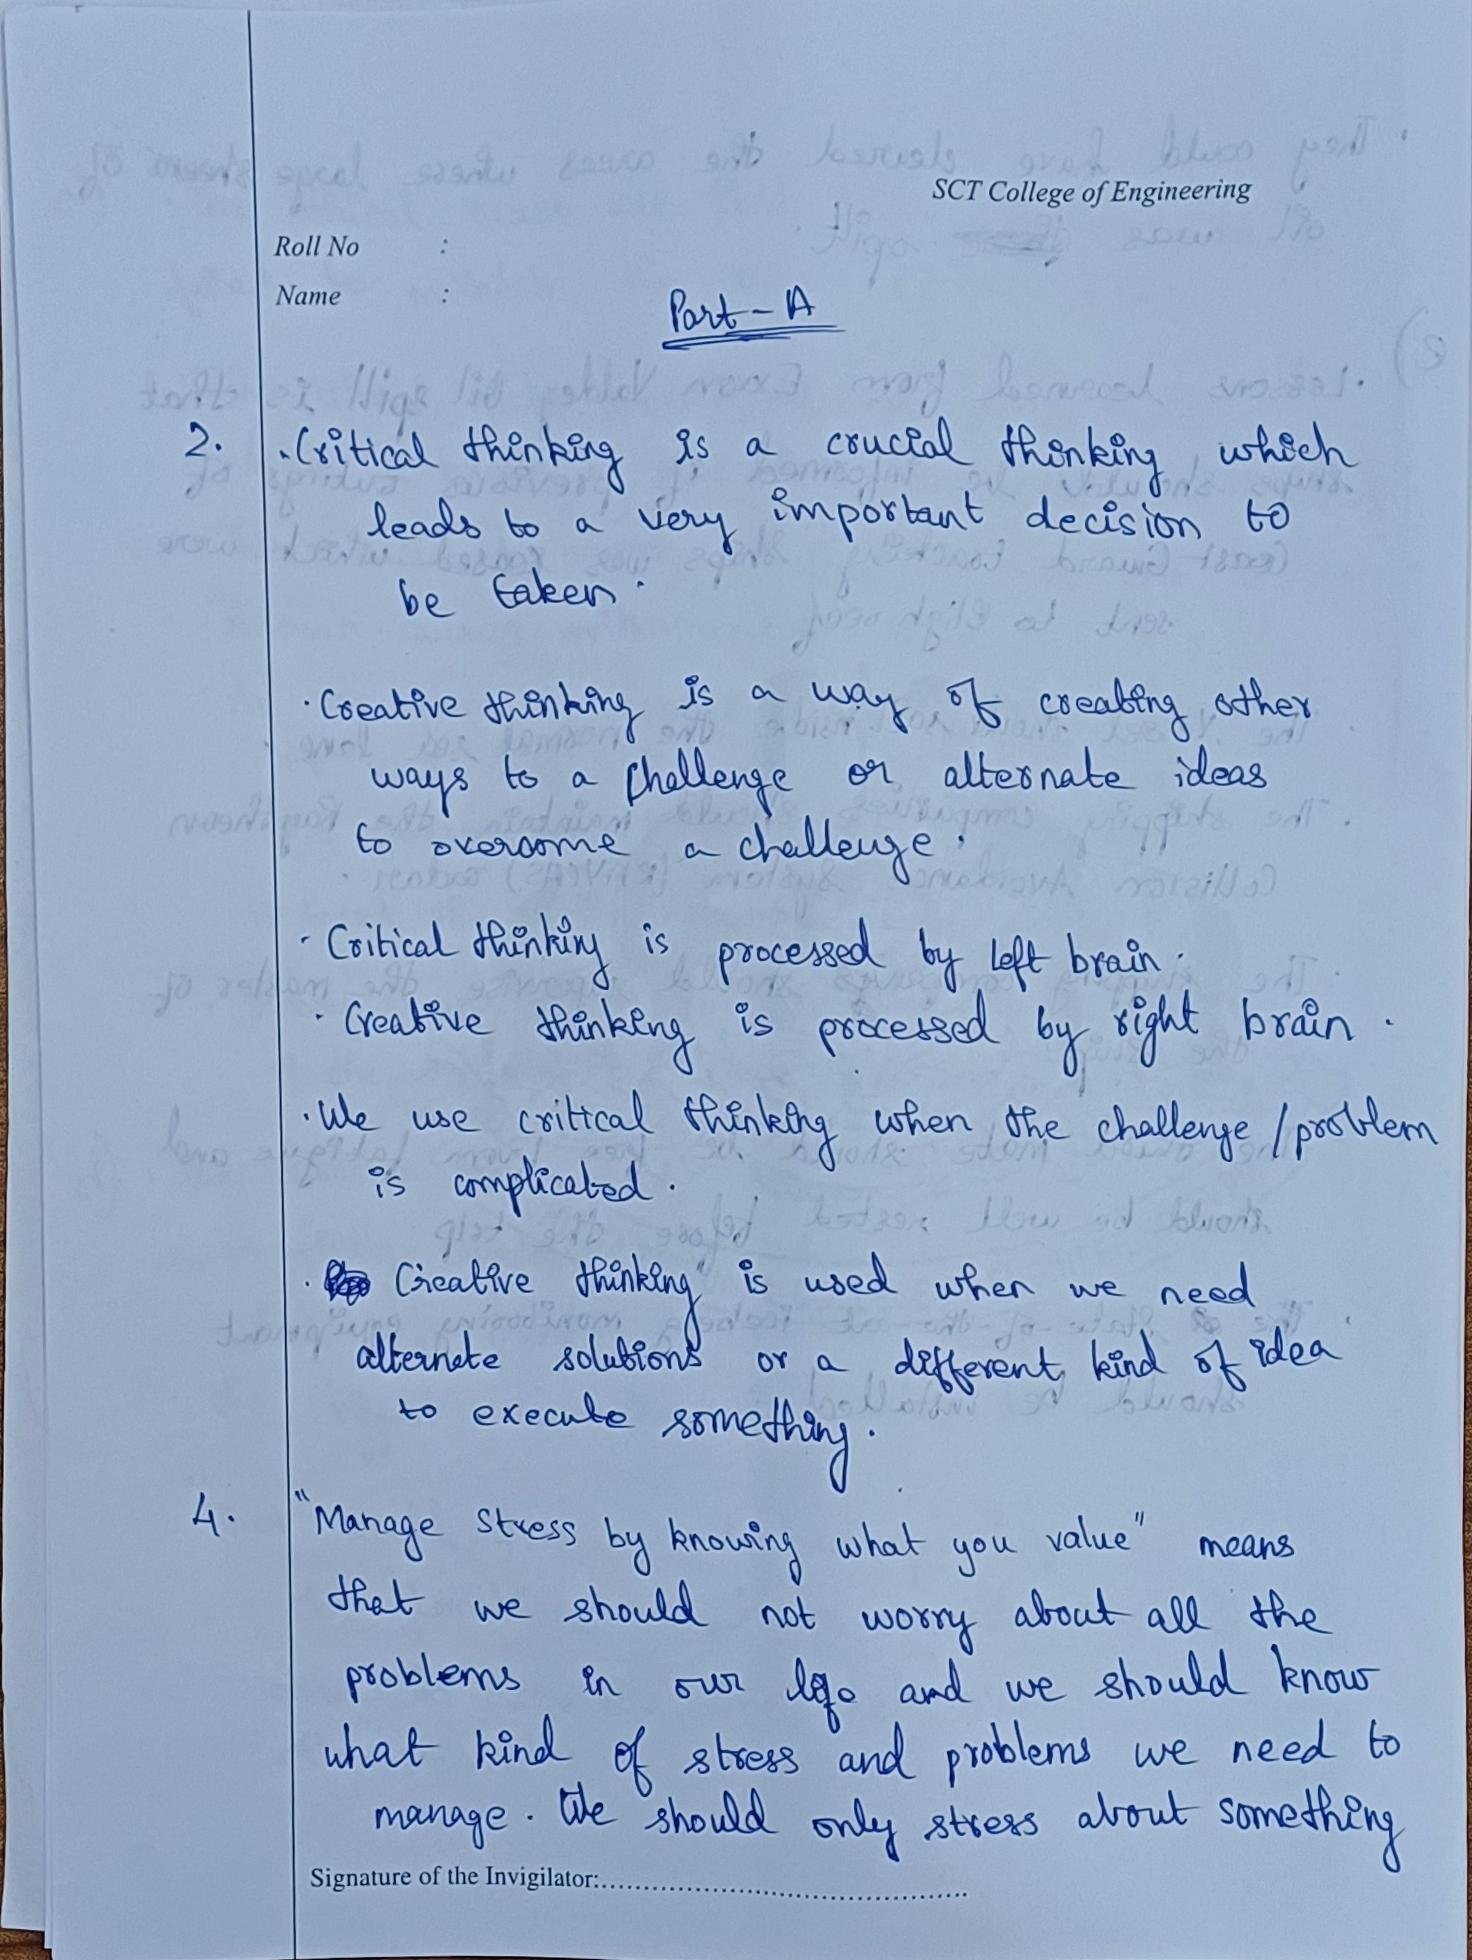 SCT College of Engineering
Roll No :
Name :
Part - A
2. • Critical thinking is a crucial thinking which
leads to a very important decision to
be taken.
• Creative thinking is a way of creating other
ways to a challenge or alternate ideas
to overcome a challenge.
• Critical thinking is processed by left brain.
• Creative thinking is processed by right brain.
• We use critical thinking when the challenge / problem
is complicated.
• Creative thinking is used when we need
alternate solutions or a different kind of idea
to execute something.
4. "Manage stress by knowing what you value" means
that we should not worry about all the
problems in our life and we should know
what kind of stress and problems we need to
manage. We should only stress about something
Signature of the Invigilator:..............................................